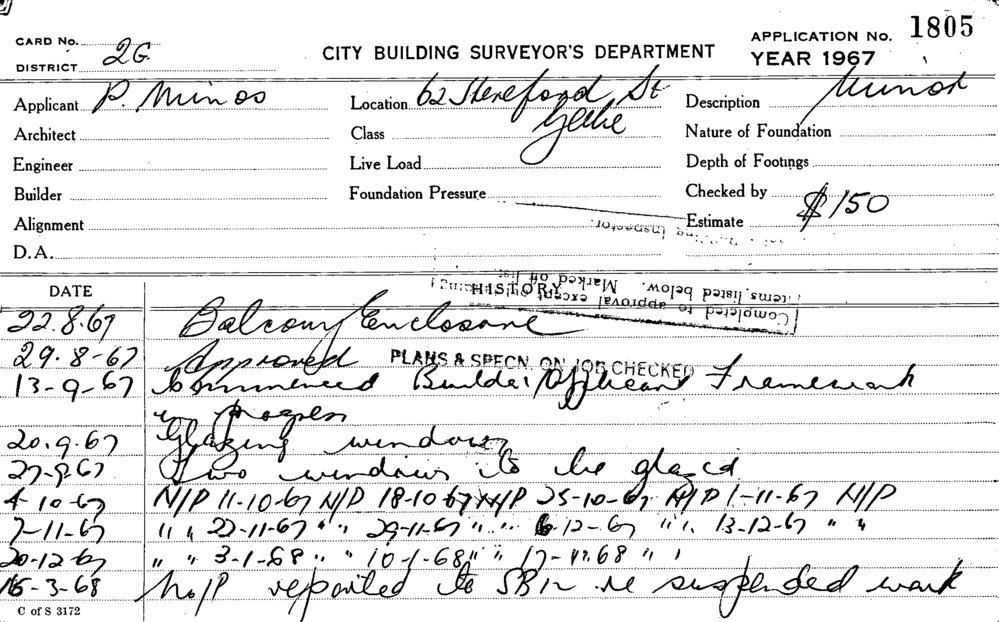 CARD No.
DISTRICT 2G
CITY BUILDING SURVEYOR'S DEPARTMENT
APPLICATION No. 1805
YEAR 1967
Applicant P. Minos
Location 62 Hereford St
Glebe
Description Minor
Architect
Class
Nature of Foundation
Engineer
Live Load
Depth of Footings
Builder
Foundation Pressure
Checked by
Alignment
Estimate $150
D.A.
Building Inspector.
Completed to approval except
items listed below. Marked off list
DATE
HISTORY
22.8.67 Balcony Enclosure
29.8-67 Approved PLANS & SPECN. ON JOB CHECKED
13-9-67 Commenced Builder/Applicant Framework
in progress
20.9.67 Glazing windows
27-9-67 Two windows to be glazed
4-10-67 N/P 11-10-67 N/P 18-10-67 N/P 25-10-67 N/P 1-11-67 N/P
7-11-67 " " 22-11-67 " " 29-11-67 " " 6-12-67 " " 13-12-67 " "
20-12-67 " " 3-1-68 " " 10-1-68 " " 17-1-68 " "
15-3-68 N/P reported to SBI re suspended work
C of S 3172